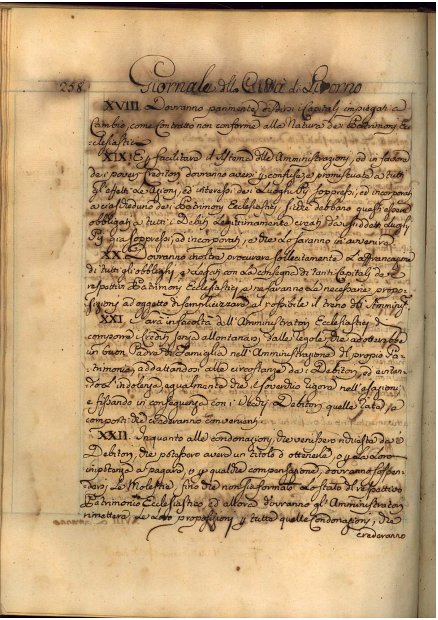 258 Giornale della Città di Livorno
XVIII. Dovranno parimente
Cambio, come Contratto non conforme alla Natura dei Patrimoni Ec
clesiastici
XIX. E facilitare il sistema delle Amministrazioni, ed in favore
dei poveri Creditori dovranno aversi confuse, e promiscuate a tutti
gli effetti le azioni, ed interessi dei Luoghi Pii soppressi, ed incorporati
a ciascheduno dei Patrimoni Ecclesiastici, si che debbano questi essere
obbligati a tutti i debiti legittimamente creati da ciascheduno degli
già soppressi, ed incorporati, e che lo saranno in avvenire
XX. Dovranno inoltre procurare sollecitamente la affrancazione
di tutti gli obblighi, e Legati con la consegna di tanti Capitali dei
respettivi Patrimoni Ecclesiastici, e ne faranno le necessarie propo
sizioni ad oggetto di semplicizzare al possibile il treno dell'Amminis
XXI. Sarà in facoltà dell'Amministratori Ecclesiastici di
comporre i Crediti senza allontanarsi dalle regole, che adotterebbe
un buon Padre di Famiglia nell'Amministrazione del proprio Pa
trimonio, adattandosi alle circostanze dei Debitori, ed evitan
do l'indolenza, egualmente che il soverchio rigore nell'esazioni
e fissando in conseguenza con i Debitori quelle rate, e
comporti che crederanno convenienti
XXII. In quanto alle condonazioni, che venissero richieste dai
Debitori, che potessero avere un titolo di ottenerle, o la loro
impotenza a pagare, o qualche compensazione, dovranno sospen
dersi le Molestie, fino che non sia formato lo stato del respettivo
Patrimonio Ecclesiastico, ed allora dovranno gl'Amministratori
rimettere le loro proposizioni tutte quelle Condonazioni, che
crederanno